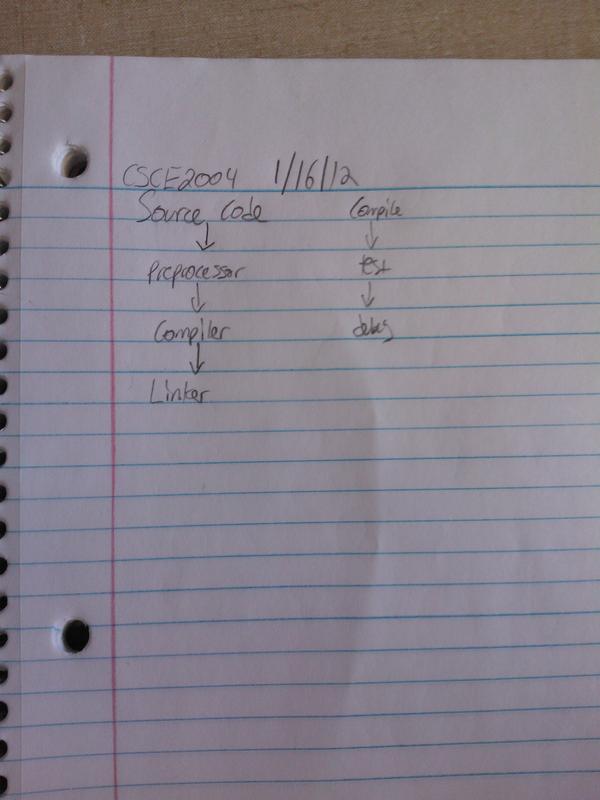 CSCE2004 1/16/12
Source Code Compile
↓ ↓
Preprocessor test
↓ ↓
Compiler debug
↓
Linker